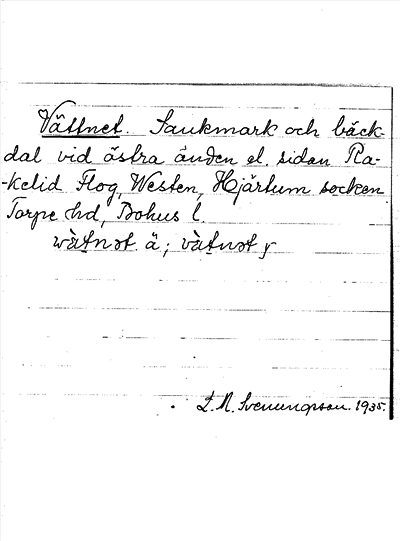 Vättnet. Sankmark och bäck-
dal vid östra änden el. sidan Ra-
-kelid Flog, Westen, Hjärtum socken
Torpe hd, Bohus l.
wàt̠nət ä; vàt̠nət y
L. M. Svenungsson. 1935.